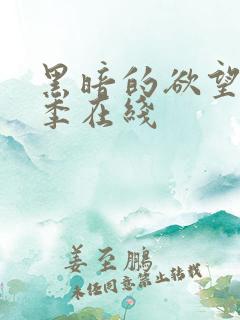 黑暗的欲望
季在綫
姜至鹏
未经同意禁止转载